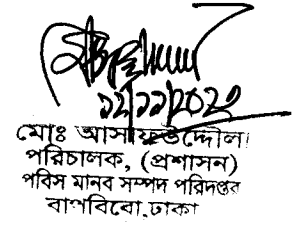 ১২/১১/২০২৩
মোঃ আসাফউদ্দৌলা
পরিচালক, (প্রশাসন)
পবিস মানব সম্পদ পরিদপ্তর
বাপবিবো, ঢাকা